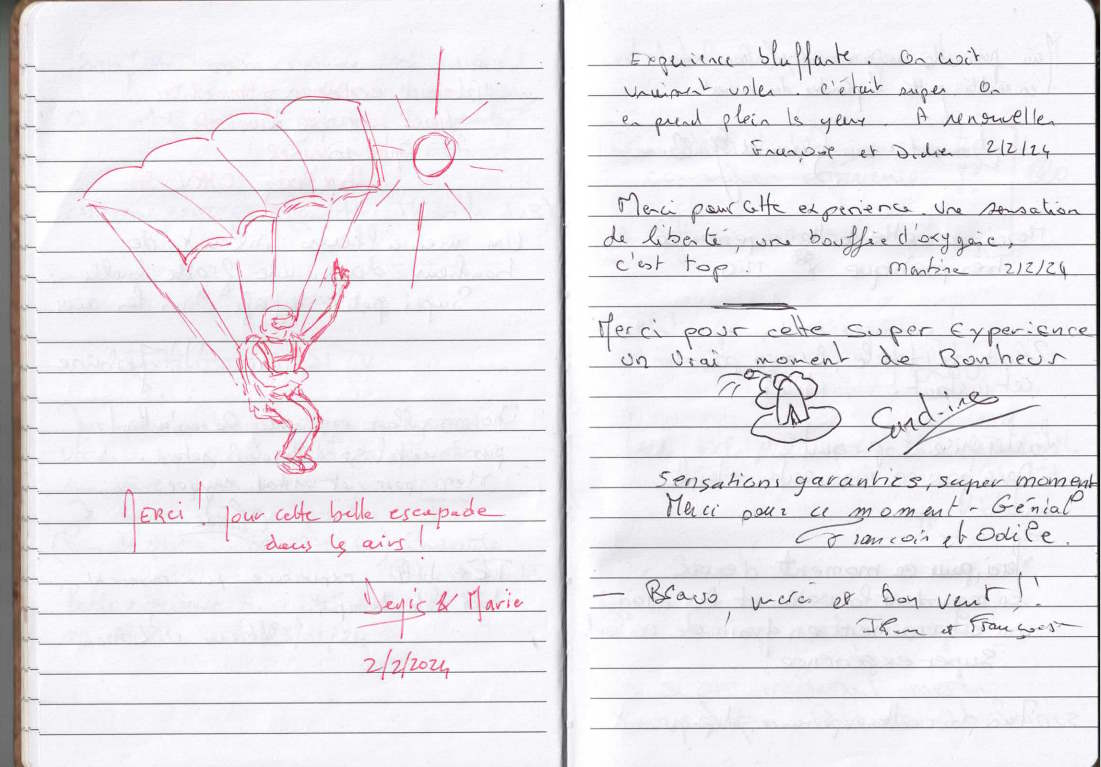 MERCi! pour cette belle escapade
dans les airs!
Denis & Marie
2/2/2024
Experience bluffante. On croit
vraiment voler. c'était super. On
en prend plein les yeux. A renouveller
Françoise et Didier 2/2/24
Merci pour cette experience. Une sensation
de liberté, une bouffée d'oxygène,
c'est top. Martine 2/2/24
Merci pour cette Super Experience
un Vrai moment de Bonheur
Sandrine
Sensations garanties, super moment
Merci pour ce moment - Génial
Francois et Odile.
— Bravo, merci et bon vent!!
et François